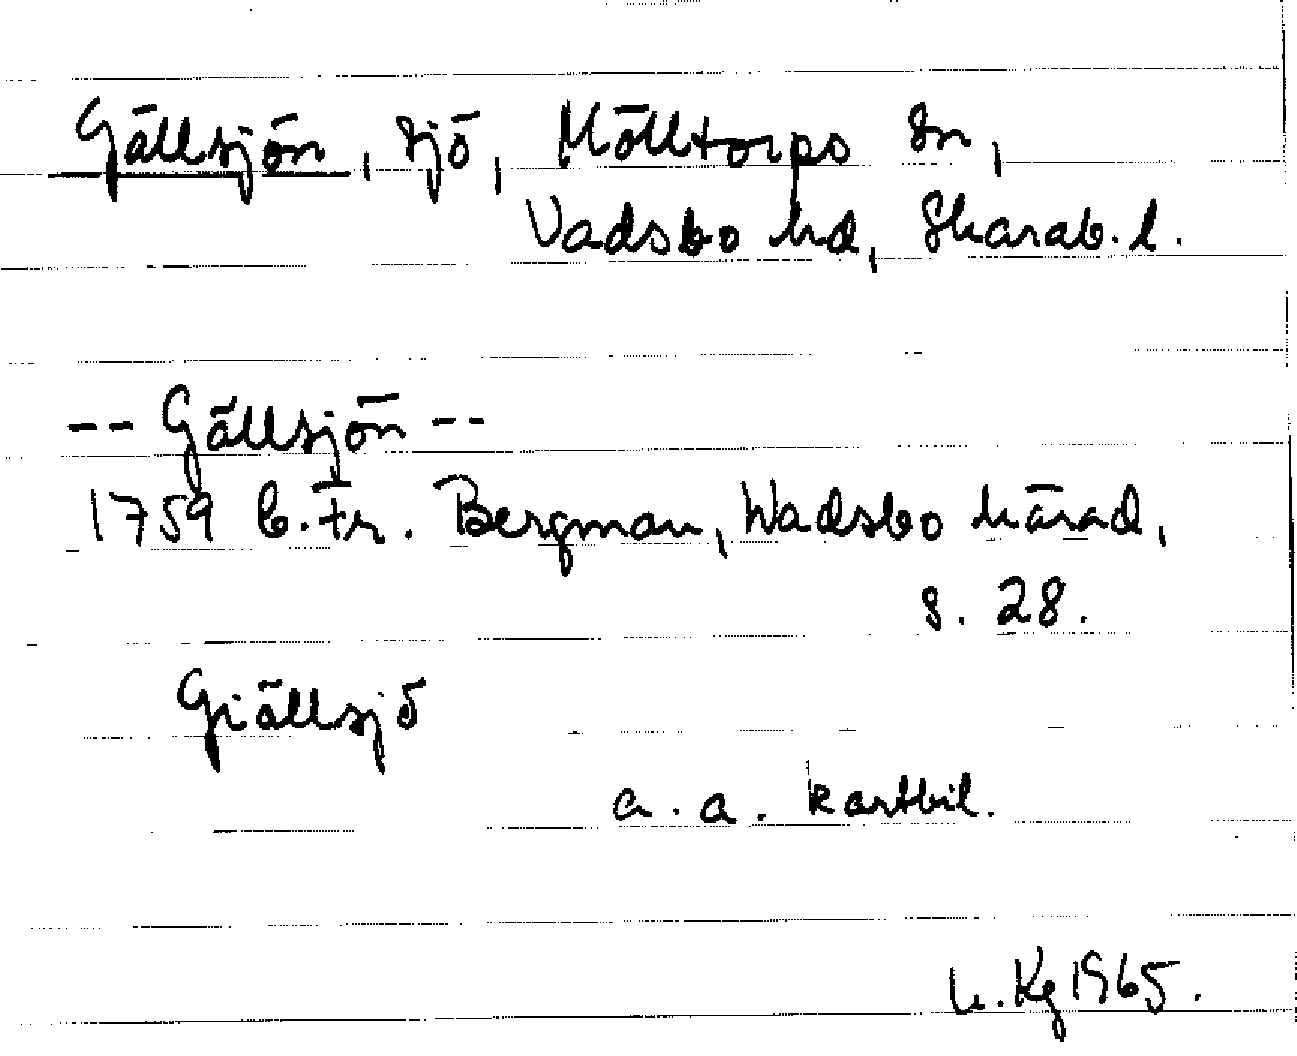 Gällsjön, sjö, Mölltorps sn,
Vadsbo hd, Skarab. l.
-- Gällsjön --
1759 C. Fr. Bergman, Wadsbo härad,
s. 28.
Giällsjö
a. a. kartbil.
L. Kg 1965.